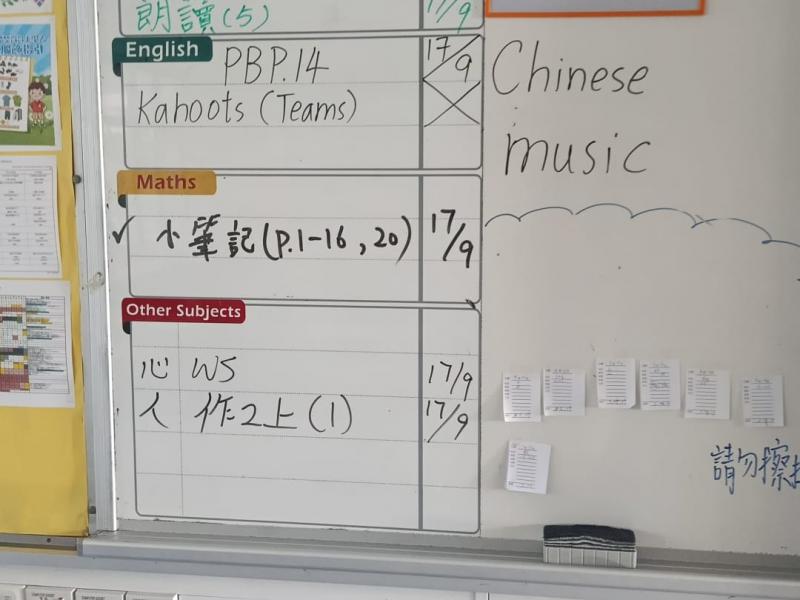 朗讀(5) 17/9
English
PBP.14 17/9
Kahoots (Teams)
Maths
✓ 小筆記(p.1-16,20) 17/9
Other Subjects
心 WS 17/9
人 作2上(1) 17/9
Chinese
music
請勿擦